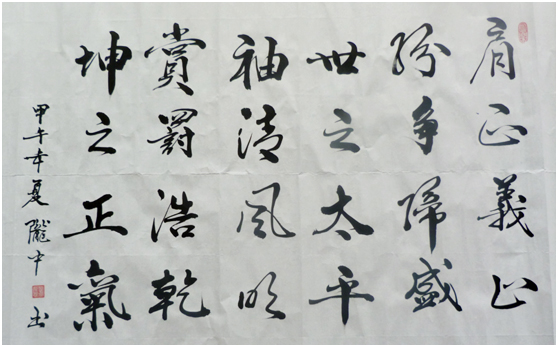 肩正義止
紛争歸盛
世之太平
袖清風明
賞罰浩乾
坤之正氣
甲午年夏隴中書